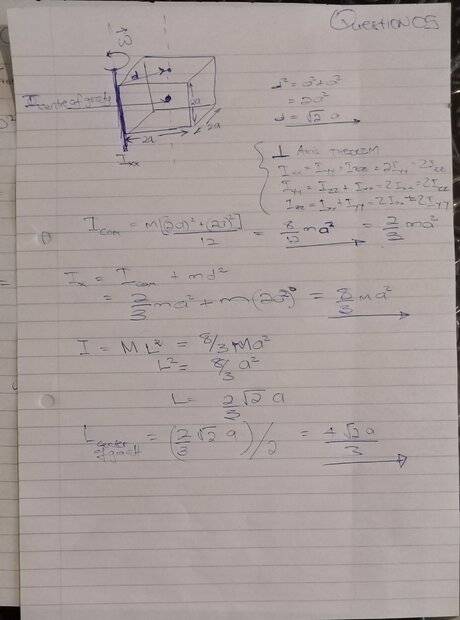 Question 05
ω
d
I centre of gravity
2a
2a
2a
Ixx
d² = a² + a²
= 2a²
d = √2 a
⊥ Axis THEOREM
Ixx = Iyy + Izz = 2Iyy = 2Izz
Iyy = Izz + Ixx = 2Ixx = 2Izz
Izz = Ixx + Iyy = 2Ixx = 2Iyy
Icom = M[(2a)² + (2a)²]/12 = 8/12 ma² = 2/3 ma²
Ix = Icom + md²
= 2/3 ma² + m(2a²) = 8/3 Ma²
I = ML² = 8/3 Ma²
L² = 8/3 a²
L = 2/3 √2 a
L center of gravit = (2/3 √2 a)/2 = + √2 a/3